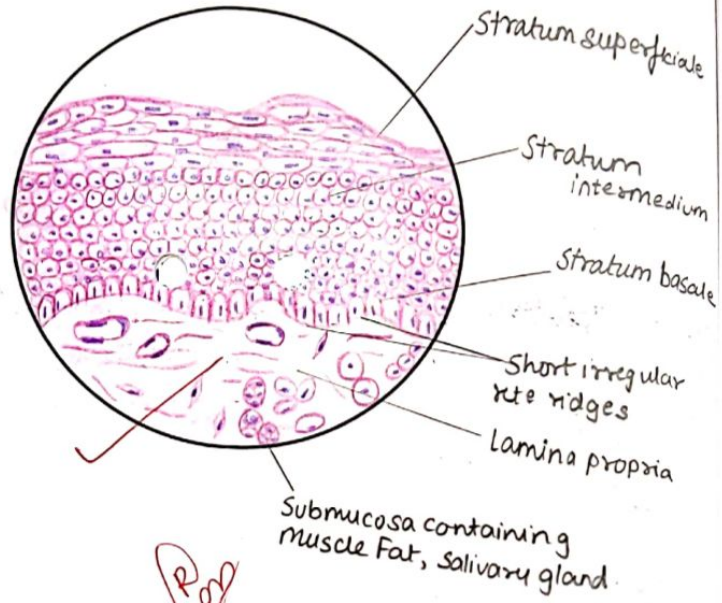 Stratum superficiale
Stratum
intermedium
Stratum basale
Short irregular
rete ridges
Lamina propria
Submucosa containing
Muscle Fat, Salivary gland.